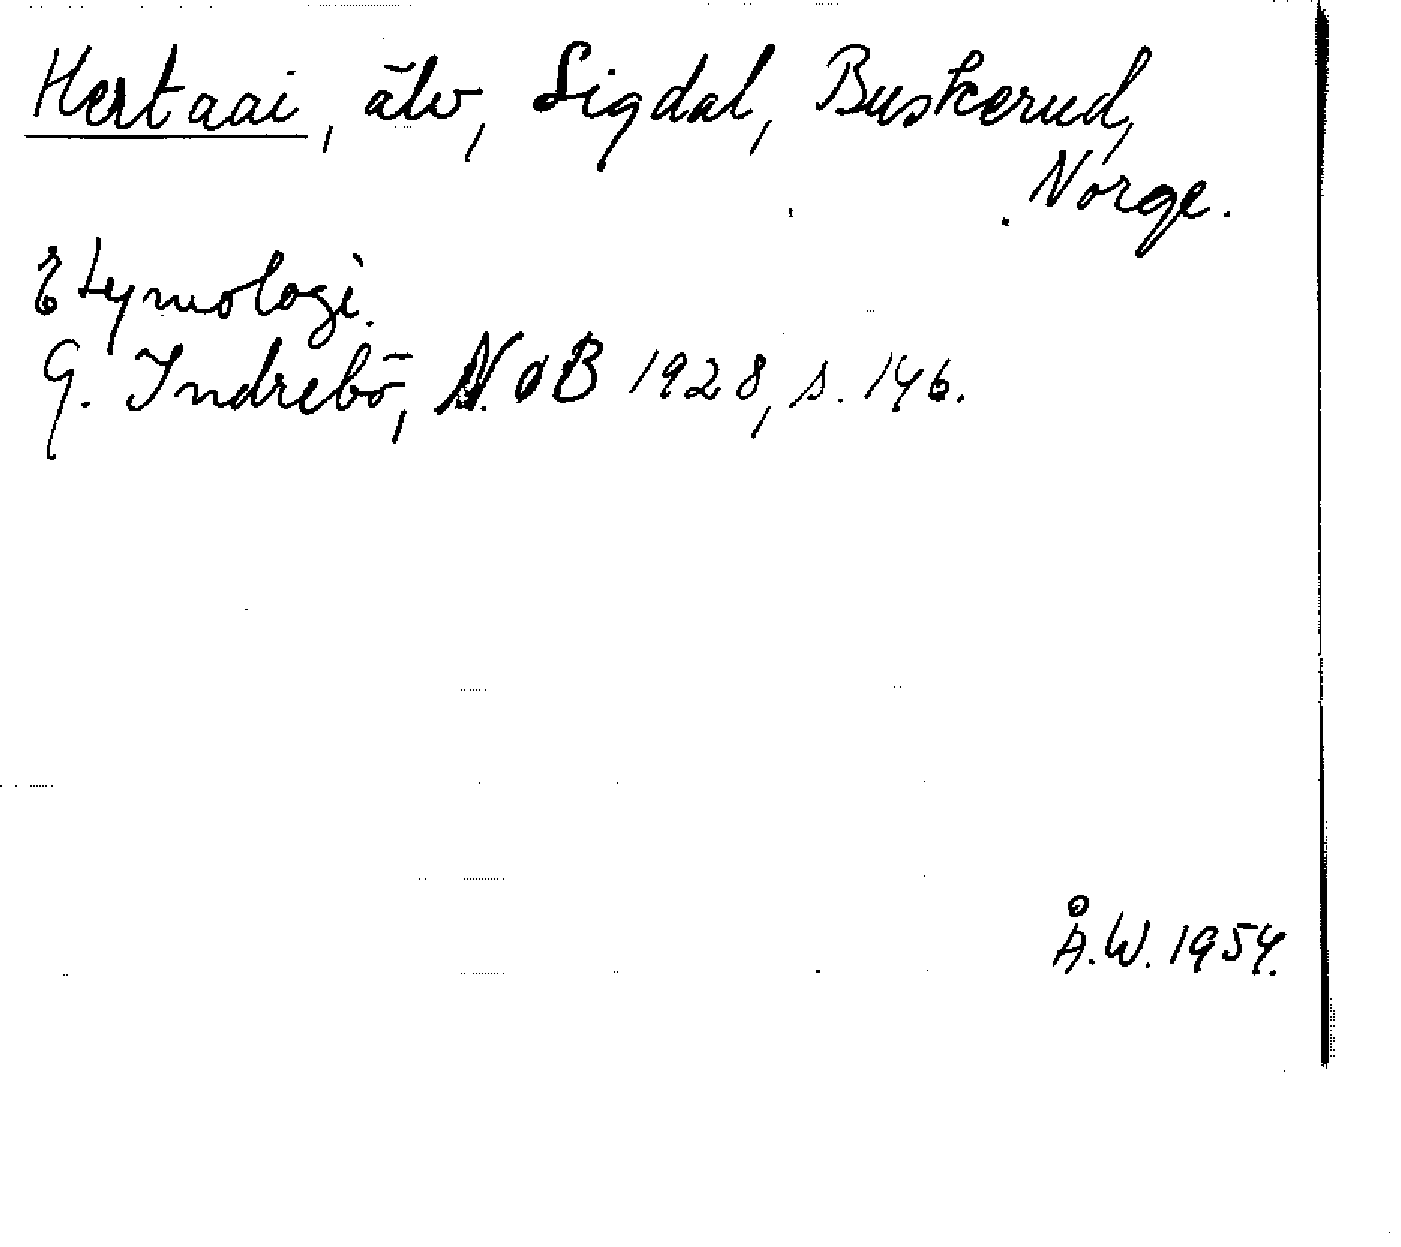 Hertaai, älv, Sigdal, Buskerud,
Norge.
Etymologi.
G. Indrebö, NoB 1928, s. 146.
Å.W. 1954.